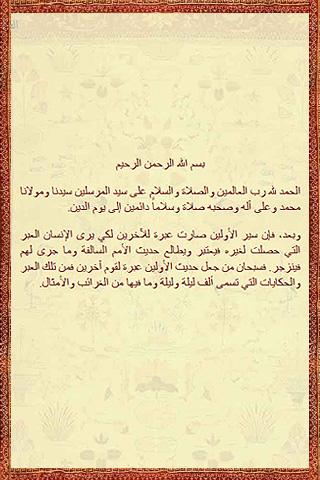 بسم الله الرحمن الرحيم
الحمد لله رب العالمين والصلاة والسلام على سيد المرسلين سيدنا ومولانا
محمد وعلى آله وصحبه صلاة وسلاماً دائمين إلى يوم الدين.
وبعد، فإن سير الأولين صارت عبرة للآخرين لكي يرى الإنسان العبر
التي حصلت لغيره فيعتبر ويطالع حديث الأمم السالفة وما جرى لهم
فينزجر. فسبحان من جعل حديث الأولين عبرة لقوم آخرين فمن تلك العبر
والحكايات التي تسمى ألف ليلة وليلة وما فيها من الغرائب والأمثال.